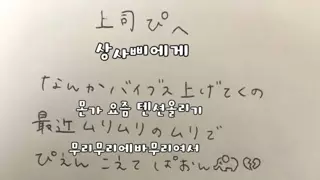 上司ぴへ
상사삐에게
なんかバイブス上げてくの
몬가 요즘 텐션올리기
最近ムリムリのムリで
무리무리에바무리여서
ぴえんこえてぱおん